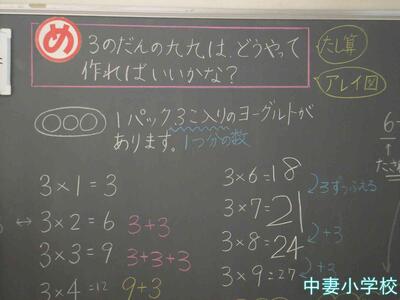 め
3のだんの九九は、どうやって
作ればいいかな?
たし算
アレイ図
1パック3こ入りのヨーグルトが
あります。1つ分の数
3×1=3
3×2=6 3+3
3×3=9 3+3+3
3×4=12 9+3
3×6=18
3ずつふえる
3×7=21
3×8=24
+3
3×9=27
+3
6
中妻小学校